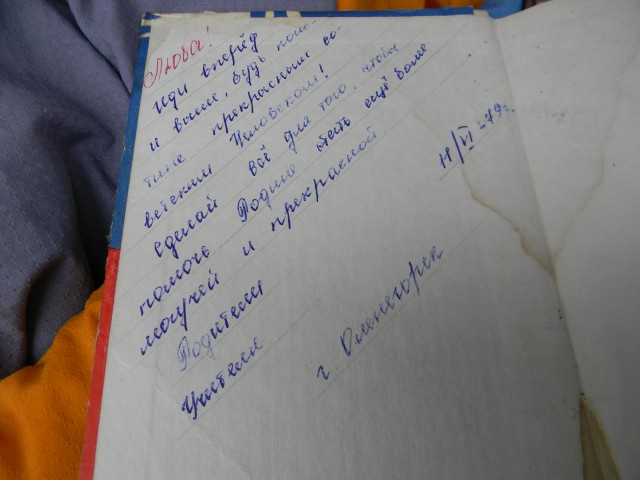 Люба!
Иди вперёд
и выше, будь поис-
тине прекрасным со-
ветским Человеком!
Сделай всё для того, чтобы
помочь Родине стать ещё более
могучей и прекрасной
Родители
Учителя
г. Оленегорск
11/VI-79г.